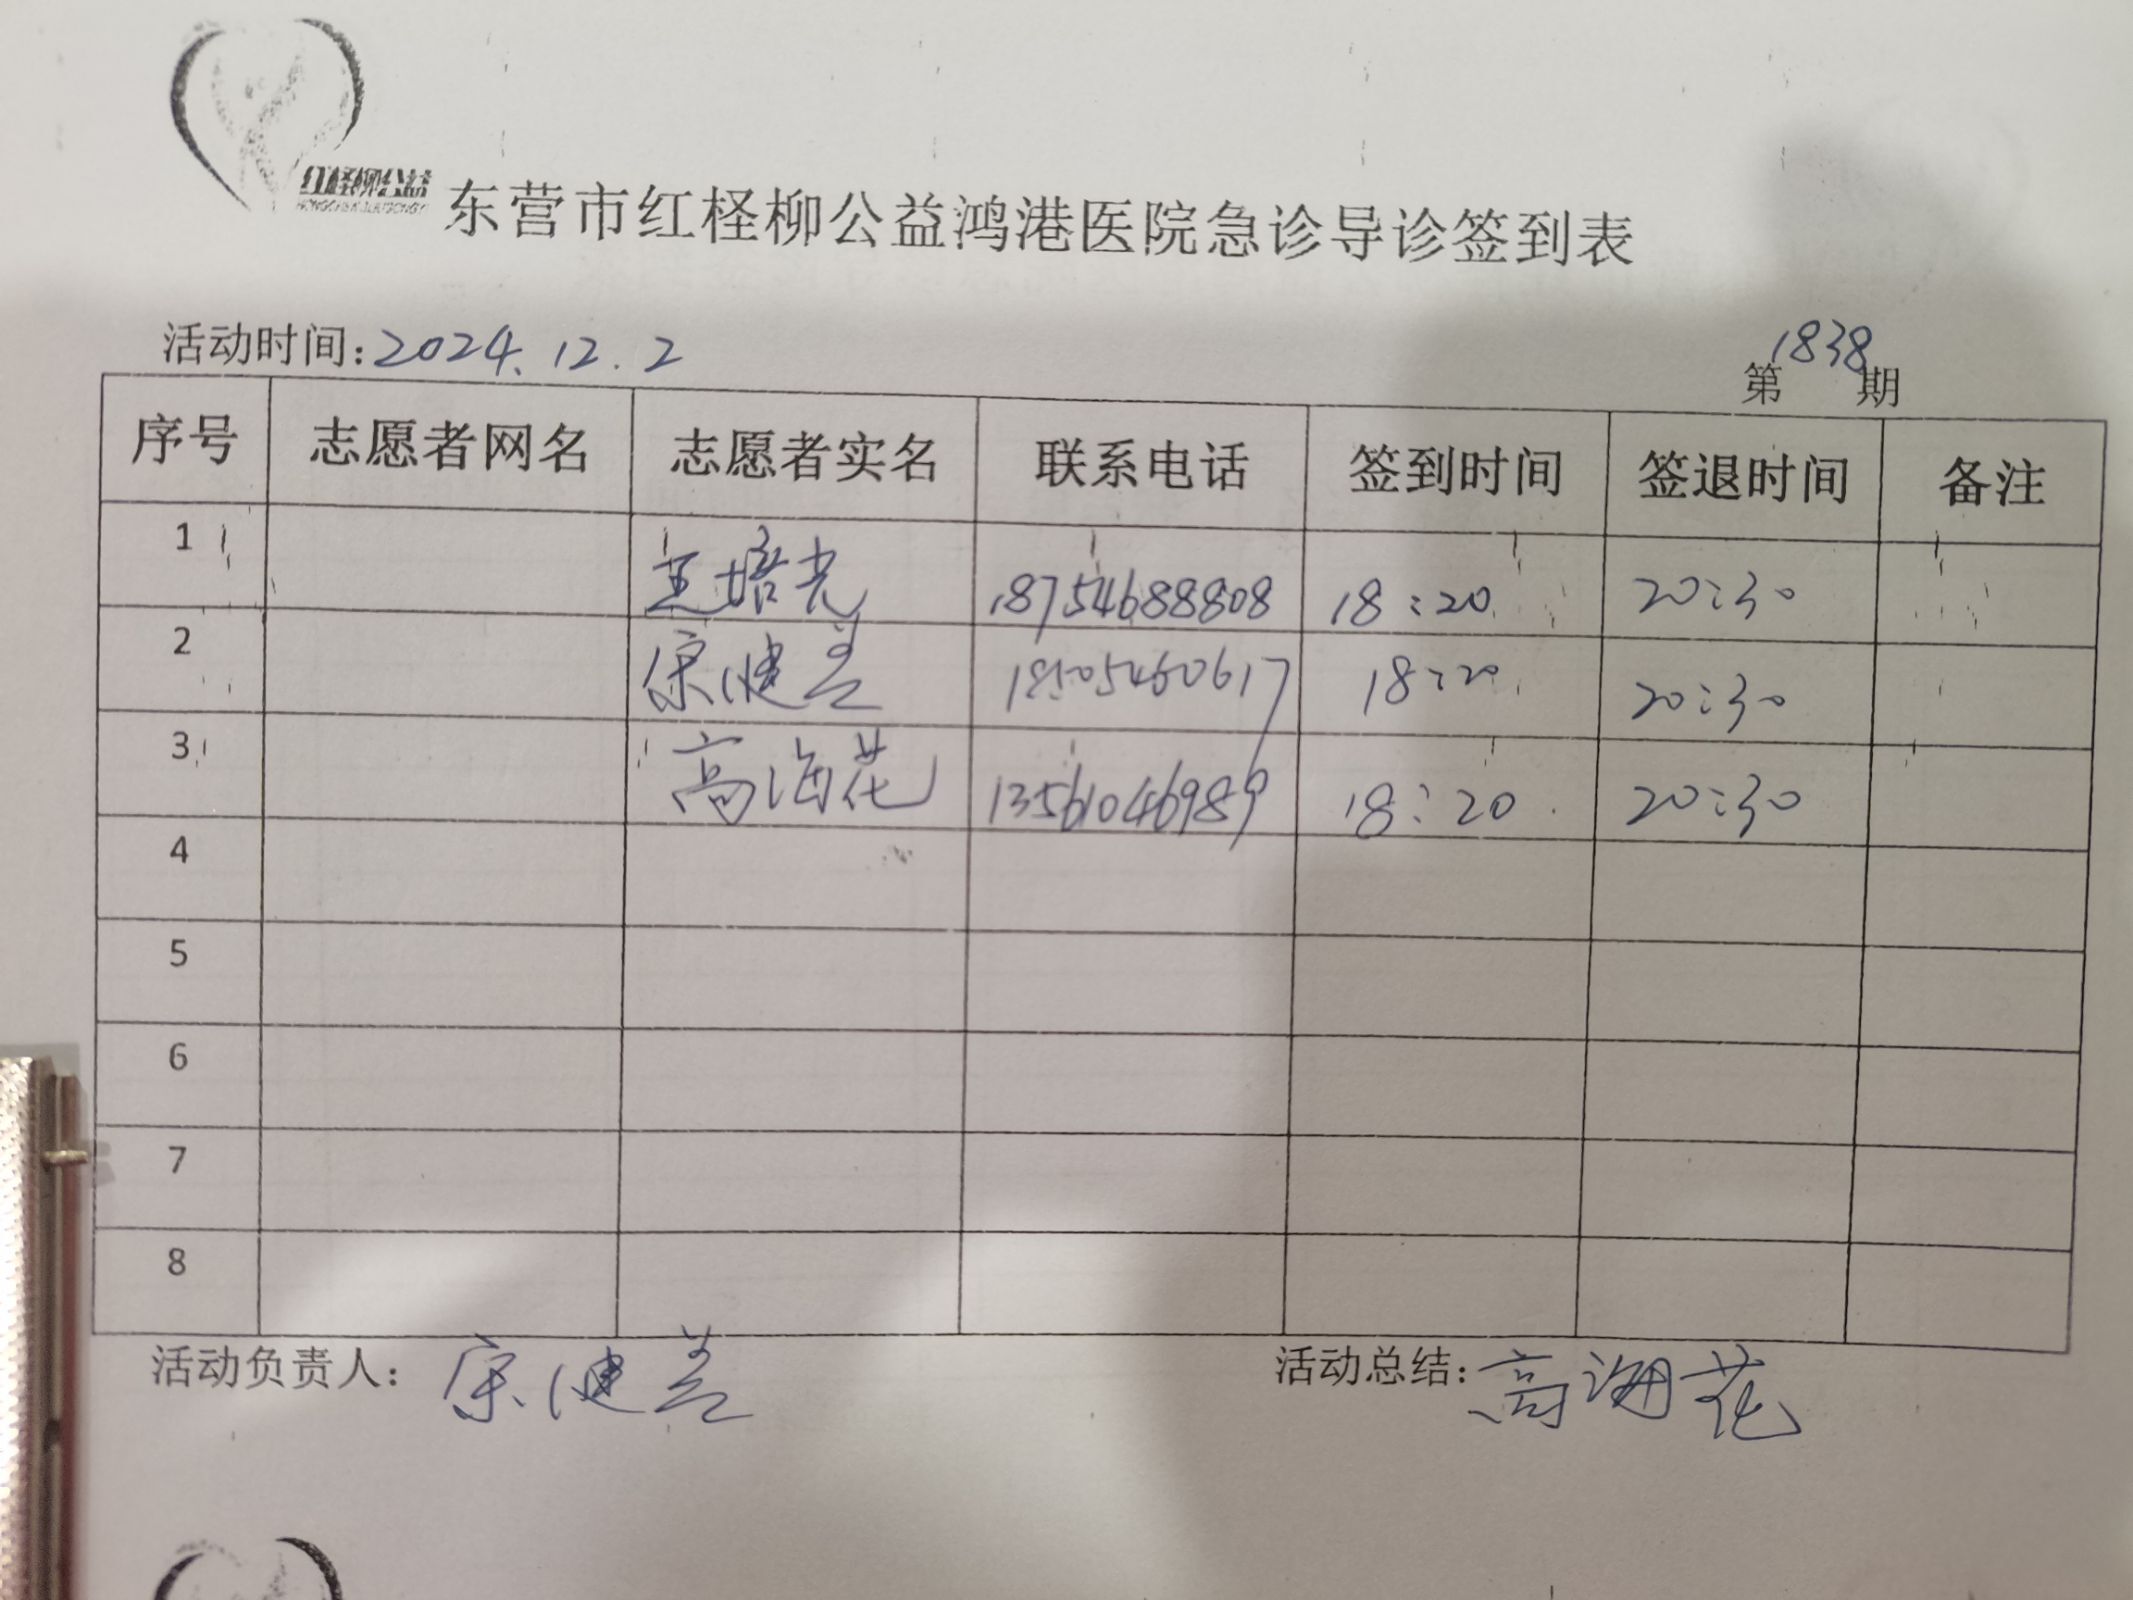 红柽柳公益
东营市红柽柳公益鸿港医院急诊导诊签到表
活动时间:2024.12.2
第1838期
序号 志愿者网名 志愿者实名 联系电话 签到时间 签退时间 备注
1 王培光 18754688808 18:20 20:30
2 宋健美 18505460617 18:20 20:30
3 高海花 13561046989 18:20 20:30
4
5
6
7
8
活动负责人: 宋健美
活动总结: 高海花